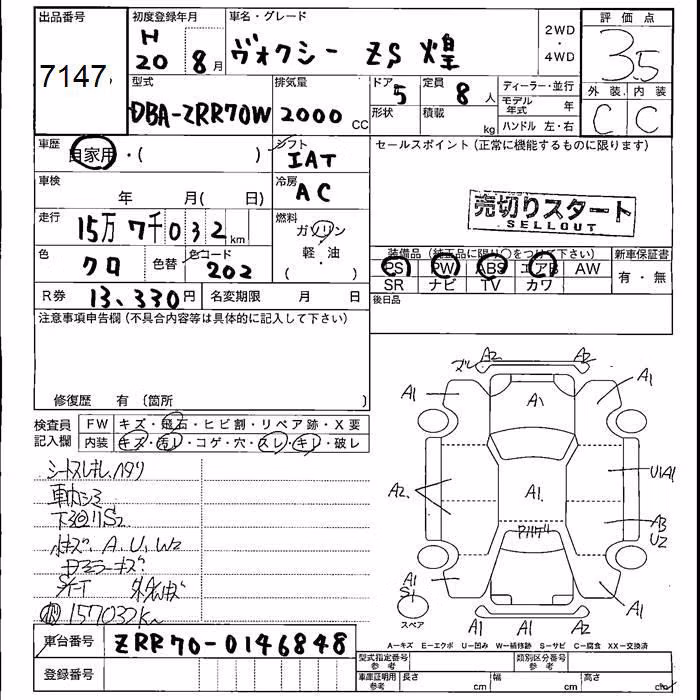 出品番号
7147
初度登録年月
H
20 8月
車名・グレード
ヴォクシー ZS 煌
2WD
・
4WD
評価点
3.5
外装 内装
C C
型式
DBA-ZRR70W
排気量
2000 CC
ドア
5
形状
定員
8人
積載
kg
ディーラー・並行
モデル年式 年
ハンドル 左・右
車歴
自家用・( )
シフト
IAT
車検
年 月( 日)
冷房
AC
走行
15万7千032km
燃料
ガソリン
軽・油
( )
色
クロ
色替
色コード
202
R券 13,330円
名変期限 月 日
セールスポイント(正常に機能するものに限ります)
売切りスタート
SELLOUT
装備品(純正品に限り○をつけて下さい)
新車保証書
PS PW ABS エアB AW
SR ナビ TV カワ
有・無
後日品
注意事項申告欄(不具合内容等は具体的に記入して下さい)
修復歴 有(箇所 )
検査員
記入欄
FW キズ・飛石・ヒビ割・リペア跡・X要
内装 キズ・汚レ・コゲ・穴・スレ・キレ・破レ
下廻りS2
キズ、A、U、W2
157032K
車台番号 ZRR70-0146848
登録番号
A2 A2
A1 A1
A1
A2 A1 U1A1
A3
U2
A1
S1
A1
スペア
A1 A1 A2
A-キズ E-エクボ U-凹み W-補修跡 S-サビ C-腐食 XX-交換済
型式指定番号
参考
類別区分番号
参考
車庫証明用
参考
長さ cm 幅 cm 高さ cm